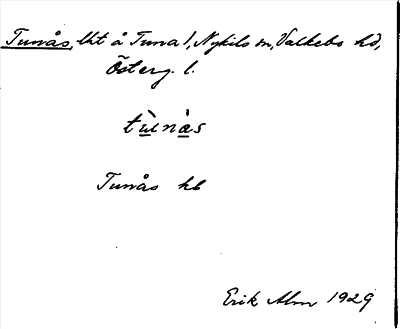 Tunås, lht å Tuna 1, Nykils sn, Valkebo hd,
Österg. l.
tùnàs
Tunås hb
Erik Alm 1929